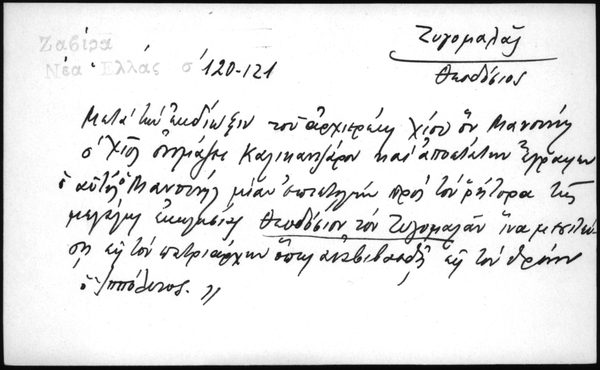 Ζαβίρα
Νέα Ἑλλάς σ' 120-121
Ζυγομαλᾶς
Θεοδόσιος
Μετὰ τὴν ἐκδίωξιν τοῦ ἀρχιερέως Χίου ὃν Μανουὴλ
ὁ Χῖος ὀνομάζει Καλικαντζάρον καὶ ἀποστάτην ἔγραψεν
ὁ αὐτὸς ὁ Μανουὴλ μίαν ἐπιστολὴν πρὸς τὸν ῥήτορα τῆς
μεγάλης ἐκκλησίας Θεοδόσιον τὸν Ζυγομαλᾶν ἵνα μεσιτεύ-
σῃ εἰς τὸν πατριάρχην ὅπως ἀναβιβασθῇ εἰς τὸν θρόνον
ὁ Ἱππόλυτος.